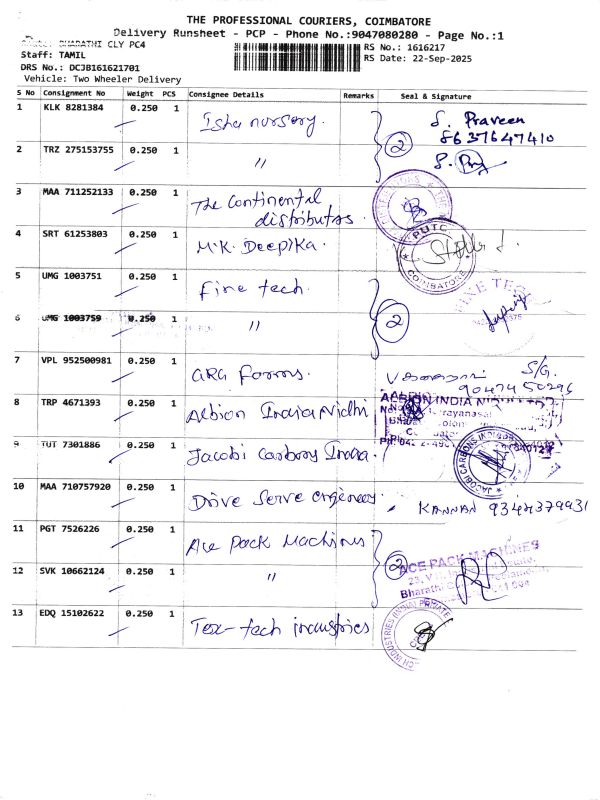 THE PROFESSIONAL COURIERS, COIMBATORE
Delivery Runsheet - PCP - Phone No.:9047080280 - Page No.:1
BHARATHI CLY PC4
RS No.: 1616217
Staff: TAMIL
RS Date: 22-Sep-2025
DRS No.: DCJB161621701
Vehicle: Two Wheeler Delivery
S No Consignment No Weight PCS Consignee Details Remarks Seal & Signature
1 KLK 8281384 0.250 1 Isha nursory. S. Praveen
8637647410
2 TRZ 275153755 0.250 1 " 2
3 MAA 711252133 0.250 1 The Continental
distributors.
4 SRT 61253803 0.250 1 M.K. Deepika.
PUTC
COIMBATORE
5 UMG 1003751 0.250 1 Fine tech.
6 UMG 1003759 0.250 1 " 2
7 VPL 952500981 0.250 1 ARG Forms. S/G.
9047450296
8 TRP 4671393 0.250 1 Albion India Nidhi
ALBION INDIA
9 TUT 7301886 0.250 1 Jacobi Carbons India.
JACOBI CARBONS INDIA
10 MAA 710757920 0.250 1 Drive Serve engineers
KANNAN
11 PGT 7526226 0.250 1 Ace Pack Machines
12 SVK 10662124 0.250 1 " 2
ACE PACK MACHINES
13 EDQ 15102622 0.250 1 Tex-tech industries
INDUSTRIES (INDIA) PRIVATE